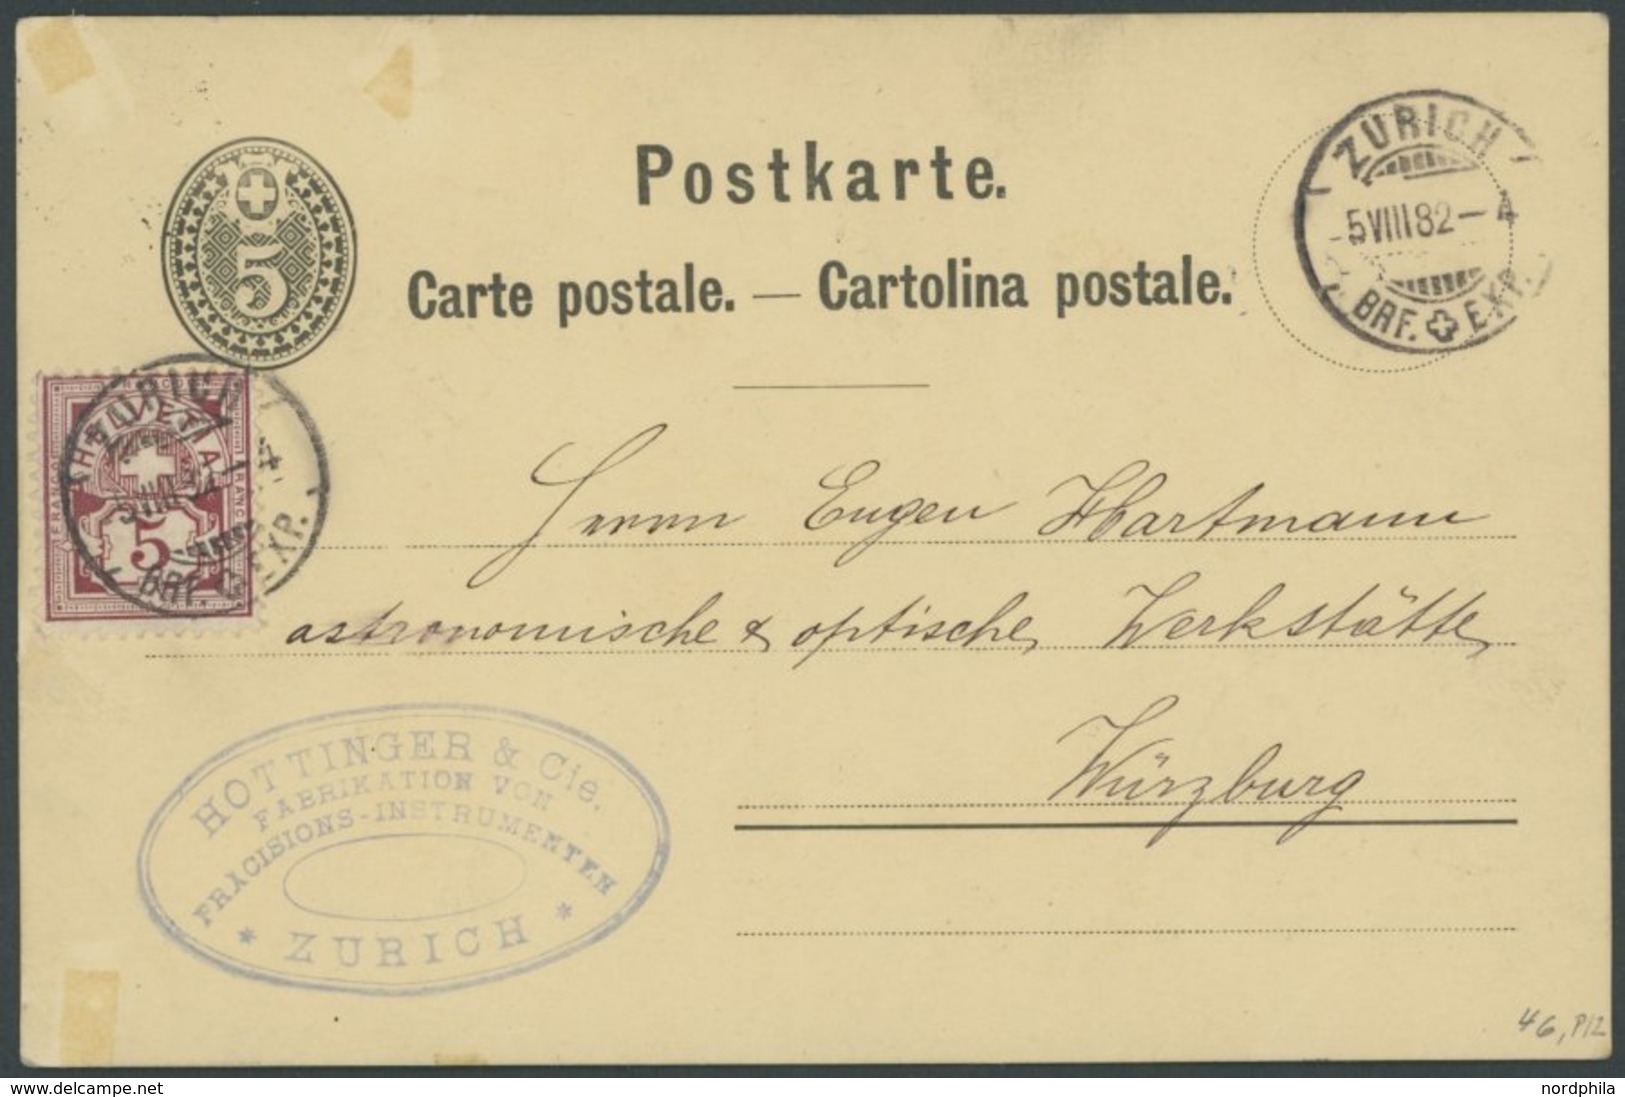 Postkarte.
Carte postale. — Cartolina postale.
5
ZÜRICH
5 VIII 82 – 4
BRF. EXP.
FRANCO
HELVETIA
FRANCO
5
ZÜRICH
5 VIII 82 – 4
BRF. EXP.
Herrn Eugen Hartmann
astronomische & optische Werkstätte
Würzburg
HOTTINGER & Cie.
FABRIKATION VON
PRÄCISIONS-INSTRUMENTEN
* ZÜRICH *
46, P12
www.delcampe.net
nordphila